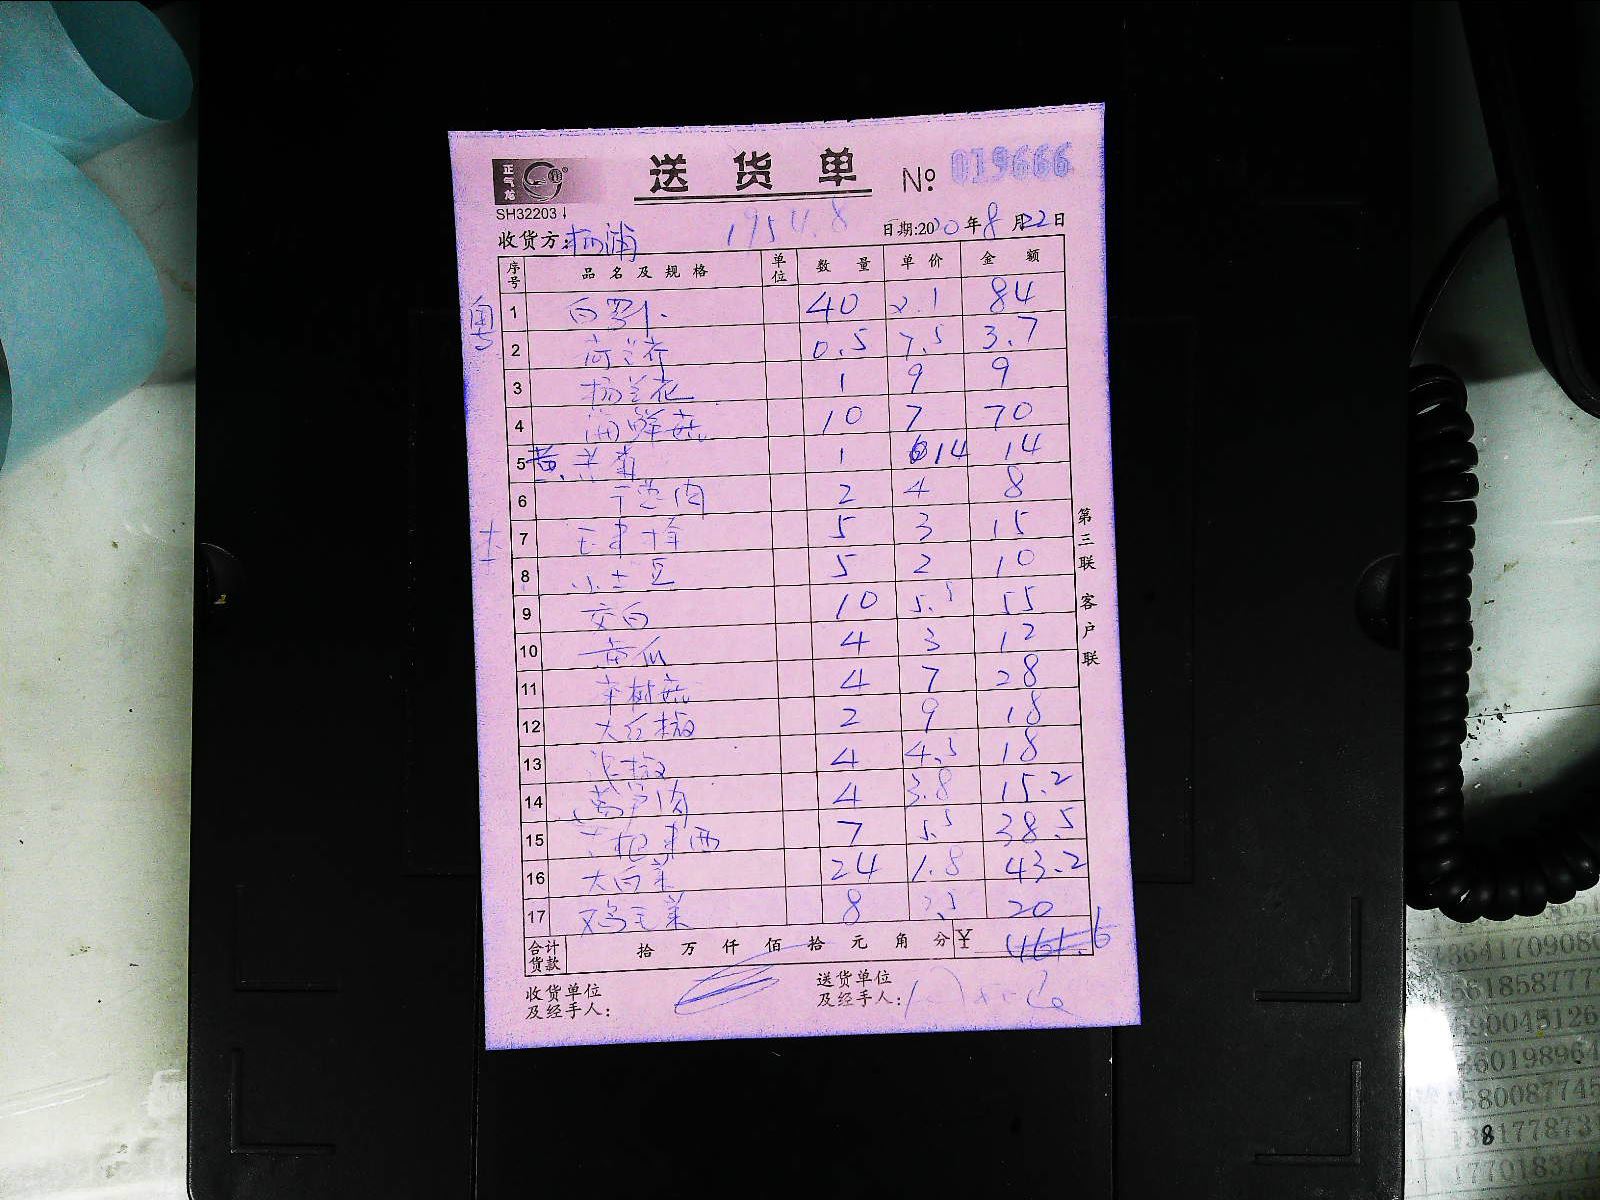 正气龙
送货单 № 019666
SH32203
1954.8
收货方：杨浦 日期:2020年8月22日
序号 品名及规格 单位 数量 单价 金额
粤
1 白罗卜 40 2.1 84
2 荷兰芹 0.5 7.5 3.7
3 杨兰花 1 9 9
4 海鲜菇 10 7 70
5 1 14 14
6 2 4 8
7 5 3 15
8 小土豆 5 2 10
9 交白 10 5.5 55
10 黄瓜 4 3 12
11 茶树菇 4 7 28
12 大红椒 2 9 18
13 4 4.5 18
14 4 3.8 15.2
15 7 5.5 38.5
16 大白菜 24 1.8 43.2
17 鸡毛菜 8 2.5 20
合计货款 拾万仟佰拾元角分 ￥ 461.6
收货单位及经手人：
送货单位及经手人：
第三联 客户联
1364170908
561858777
690045126
360198964
580087745
13817787
17701837